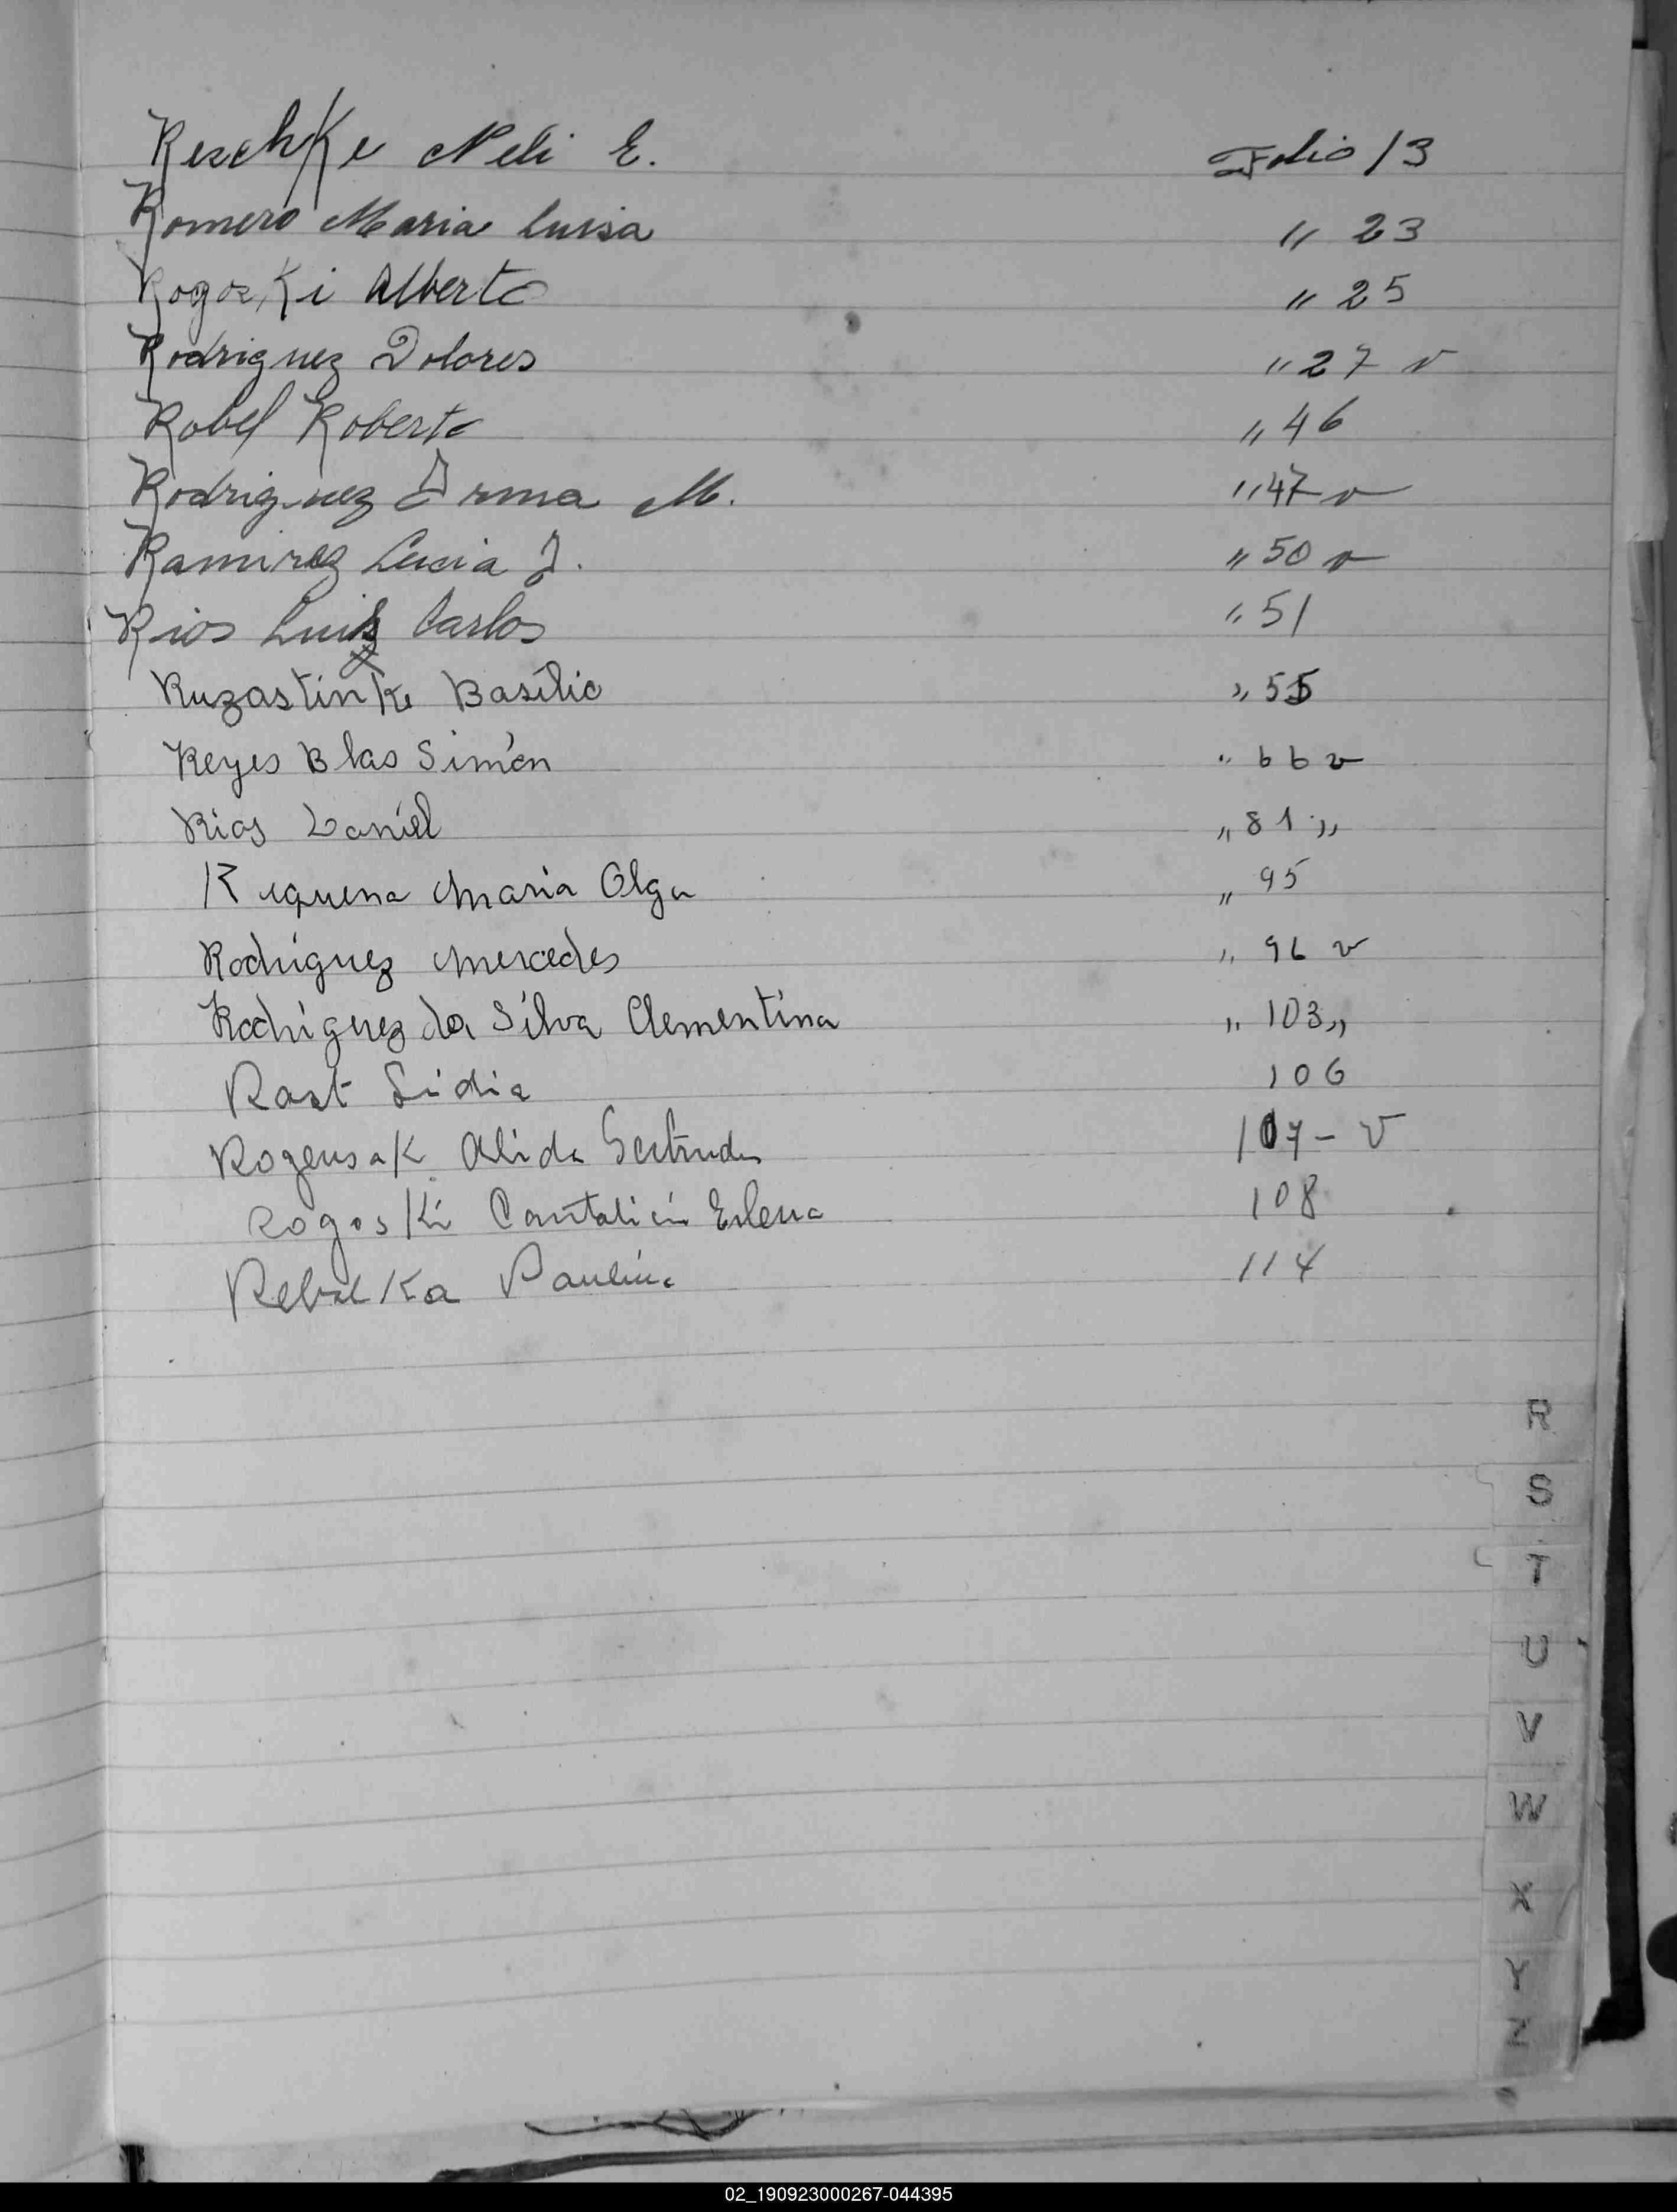 Reschke Neli E. Folio 13
Romero Maria Luisa " 23
Rogoski Alberto " 25
Rodriguez Dolores " 27 v
Robel Roberto " 46
Rodriguez Irma M. " 47 v
Ramirez Lucia J. " 50 v
Rios Luis Carlos " 51
Ruzastinke Basilio " 55
Reyes Blas Simón " 66 v
Rios Daniel " 81 "
Requena Maria Olga " 95
Rodriguez Mercedes " 96 v
Rodriguez da Silva Clementina " 103 "
Rast Lidia 106
Rogensak Alida Gertrudis 107 - V
Rogoski Cantalicia Elena 108
Paulina 114
R
S
T
U
V
W
X
Y
Z
02_190923000267-044395